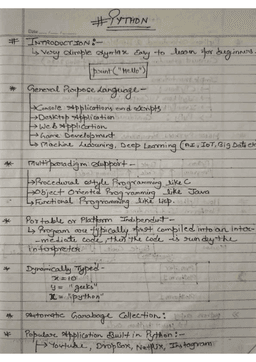 # PYTHON
# INTRODUCTION:-
↳ Very simple syntax Easy to learn for beginners.
print("Hello")
* General Purpose Language -
→ Console Applications and Scripts
→ Desktop Application
→ Web Application
→ Game Development
↳ Machine Learning, Deep Learning (AI, IoT, Big Data etc
* Multi Paradigm Support -
→ Procedural style Programming like C
→ Object Oriented Programming like Java
↳ Functional Programming like Lisp.
* Portable or Platform Independent -
↳ Program are typically first compiled into an inter-
-mediate code, then the code is run by the
interpreter.
* Dynamically Typed -
x = 10
y = "geeks"
x = "python"
* Automatic Garabage Collection:
* Popular Application Built in Python:-
↳ Youtube, DropBox, Netflix, Instagram